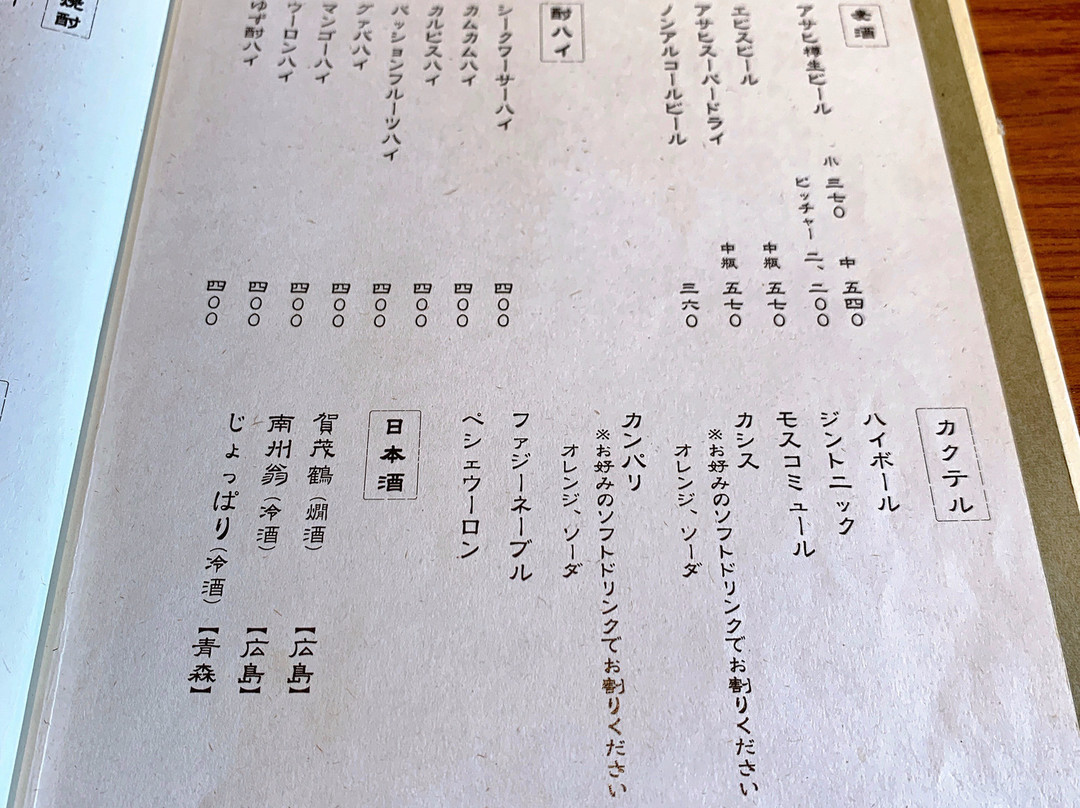 麦酒
アサヒ樽生ビール
小 三七〇
中 五四〇
ピッチャー 二、二〇〇
エビスビール
中瓶 五七〇
アサヒスーパードライ
中瓶 五七〇
ノンアルコールビール
三六〇
酎ハイ
シークワーサーハイ
四〇〇
カムカムハイ
四〇〇
カルピスハイ
四〇〇
パッションフルーツハイ
四〇〇
グァバハイ
四〇〇
マンゴーハイ
四〇〇
ウーロンハイ
四〇〇
ゆず酎ハイ
四〇〇
カクテル
ハイボール
ジントニック
モスコミュール
カシス
※お好みのソフトドリンクでお割りください
オレンジ、ソーダ
カンパリ
※お好みのソフトドリンクでお割りください
オレンジ、ソーダ
ファジーネーブル
ペシェウーロン
日本酒
賀茂鶴(燗酒)【広島】
南州翁(冷酒)【広島】
じょっぱり(冷酒)【青森】
焼酎